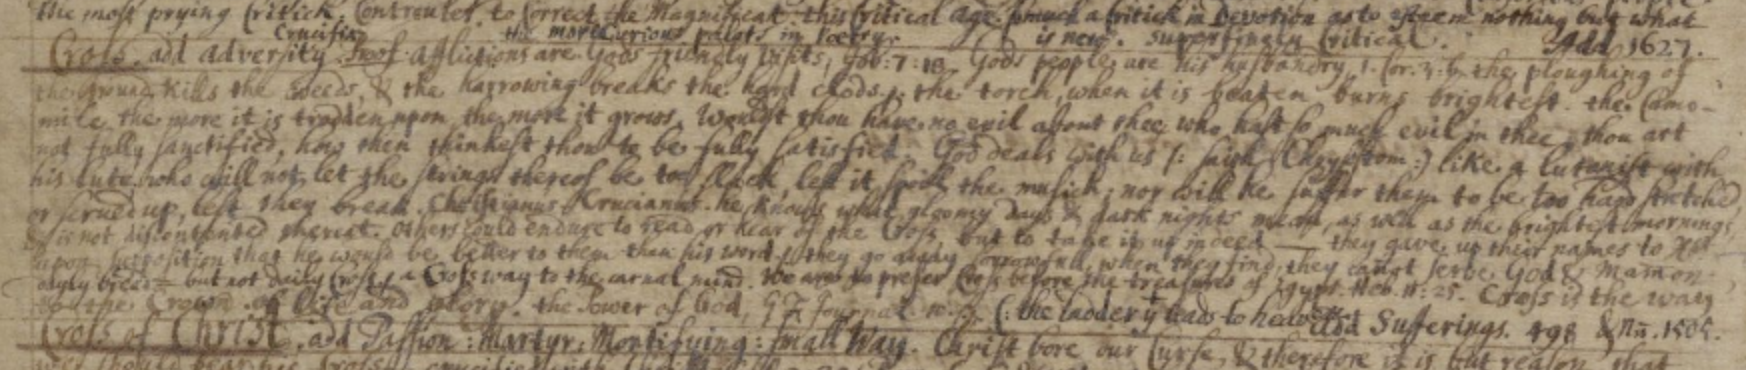 The most prying Critick. Controuler. to correct the Magnificat. this Critical age. so much a Critick in Devotion as to esteem nothing but what
Crucifix the more Curious palats in Poetry. is new. superfinely Critical. Add 1627.
Cross. add adversity. afflictions are Gods friendly visits, Job: 7: 18. Gods people are his husbandry, 1. Cor. 3: the ploughing of
the ground kills the weeds, & the harrowing breaks the hard clods: the torch, when it is beaten burns brightest. the Camo-
mile the more it is trodden upon the more it grows. Wouldst thou have no evil about thee, who hast so much evil in thee, thou art
not fully sanctified, how then thinkest thou to be fully satisfied. God deals with us (: saith Chrysostom:) like a lutenist with
his lute, who will not let the strings thereof be too slack, lest it spoil the musick; nor will he suffer them to be too hard stretched
or scrued up, lest they break. Christianus Crucianus. he knows what gloomy days & dark nights mean, as well as the brightest mornings,
& is not discontented thereat. others could endure to read or hear of the Cross, but to take it up indeed — they gave up their names to
upon supposition that he would be better to them than his word; they go away sorrowfull, when they find, they cañot serve God & Mamon
dayly bread = but not daily Cross, a Cross way to the carnal mind. We are to prefer Cross before the treasures of Egypt. Heb. 11: 25. Cross is the way
to the Crown of life and glory. the power of God, G F Journal (: the ladder yt leads to heaven. Add Sufferings. 498 & 1505.
Cross of Christ. add Passion: Martyr: Mortifying: small Way. Christ bore our Curse, & therefore it is but reason that
we should bear his Cross crucified with